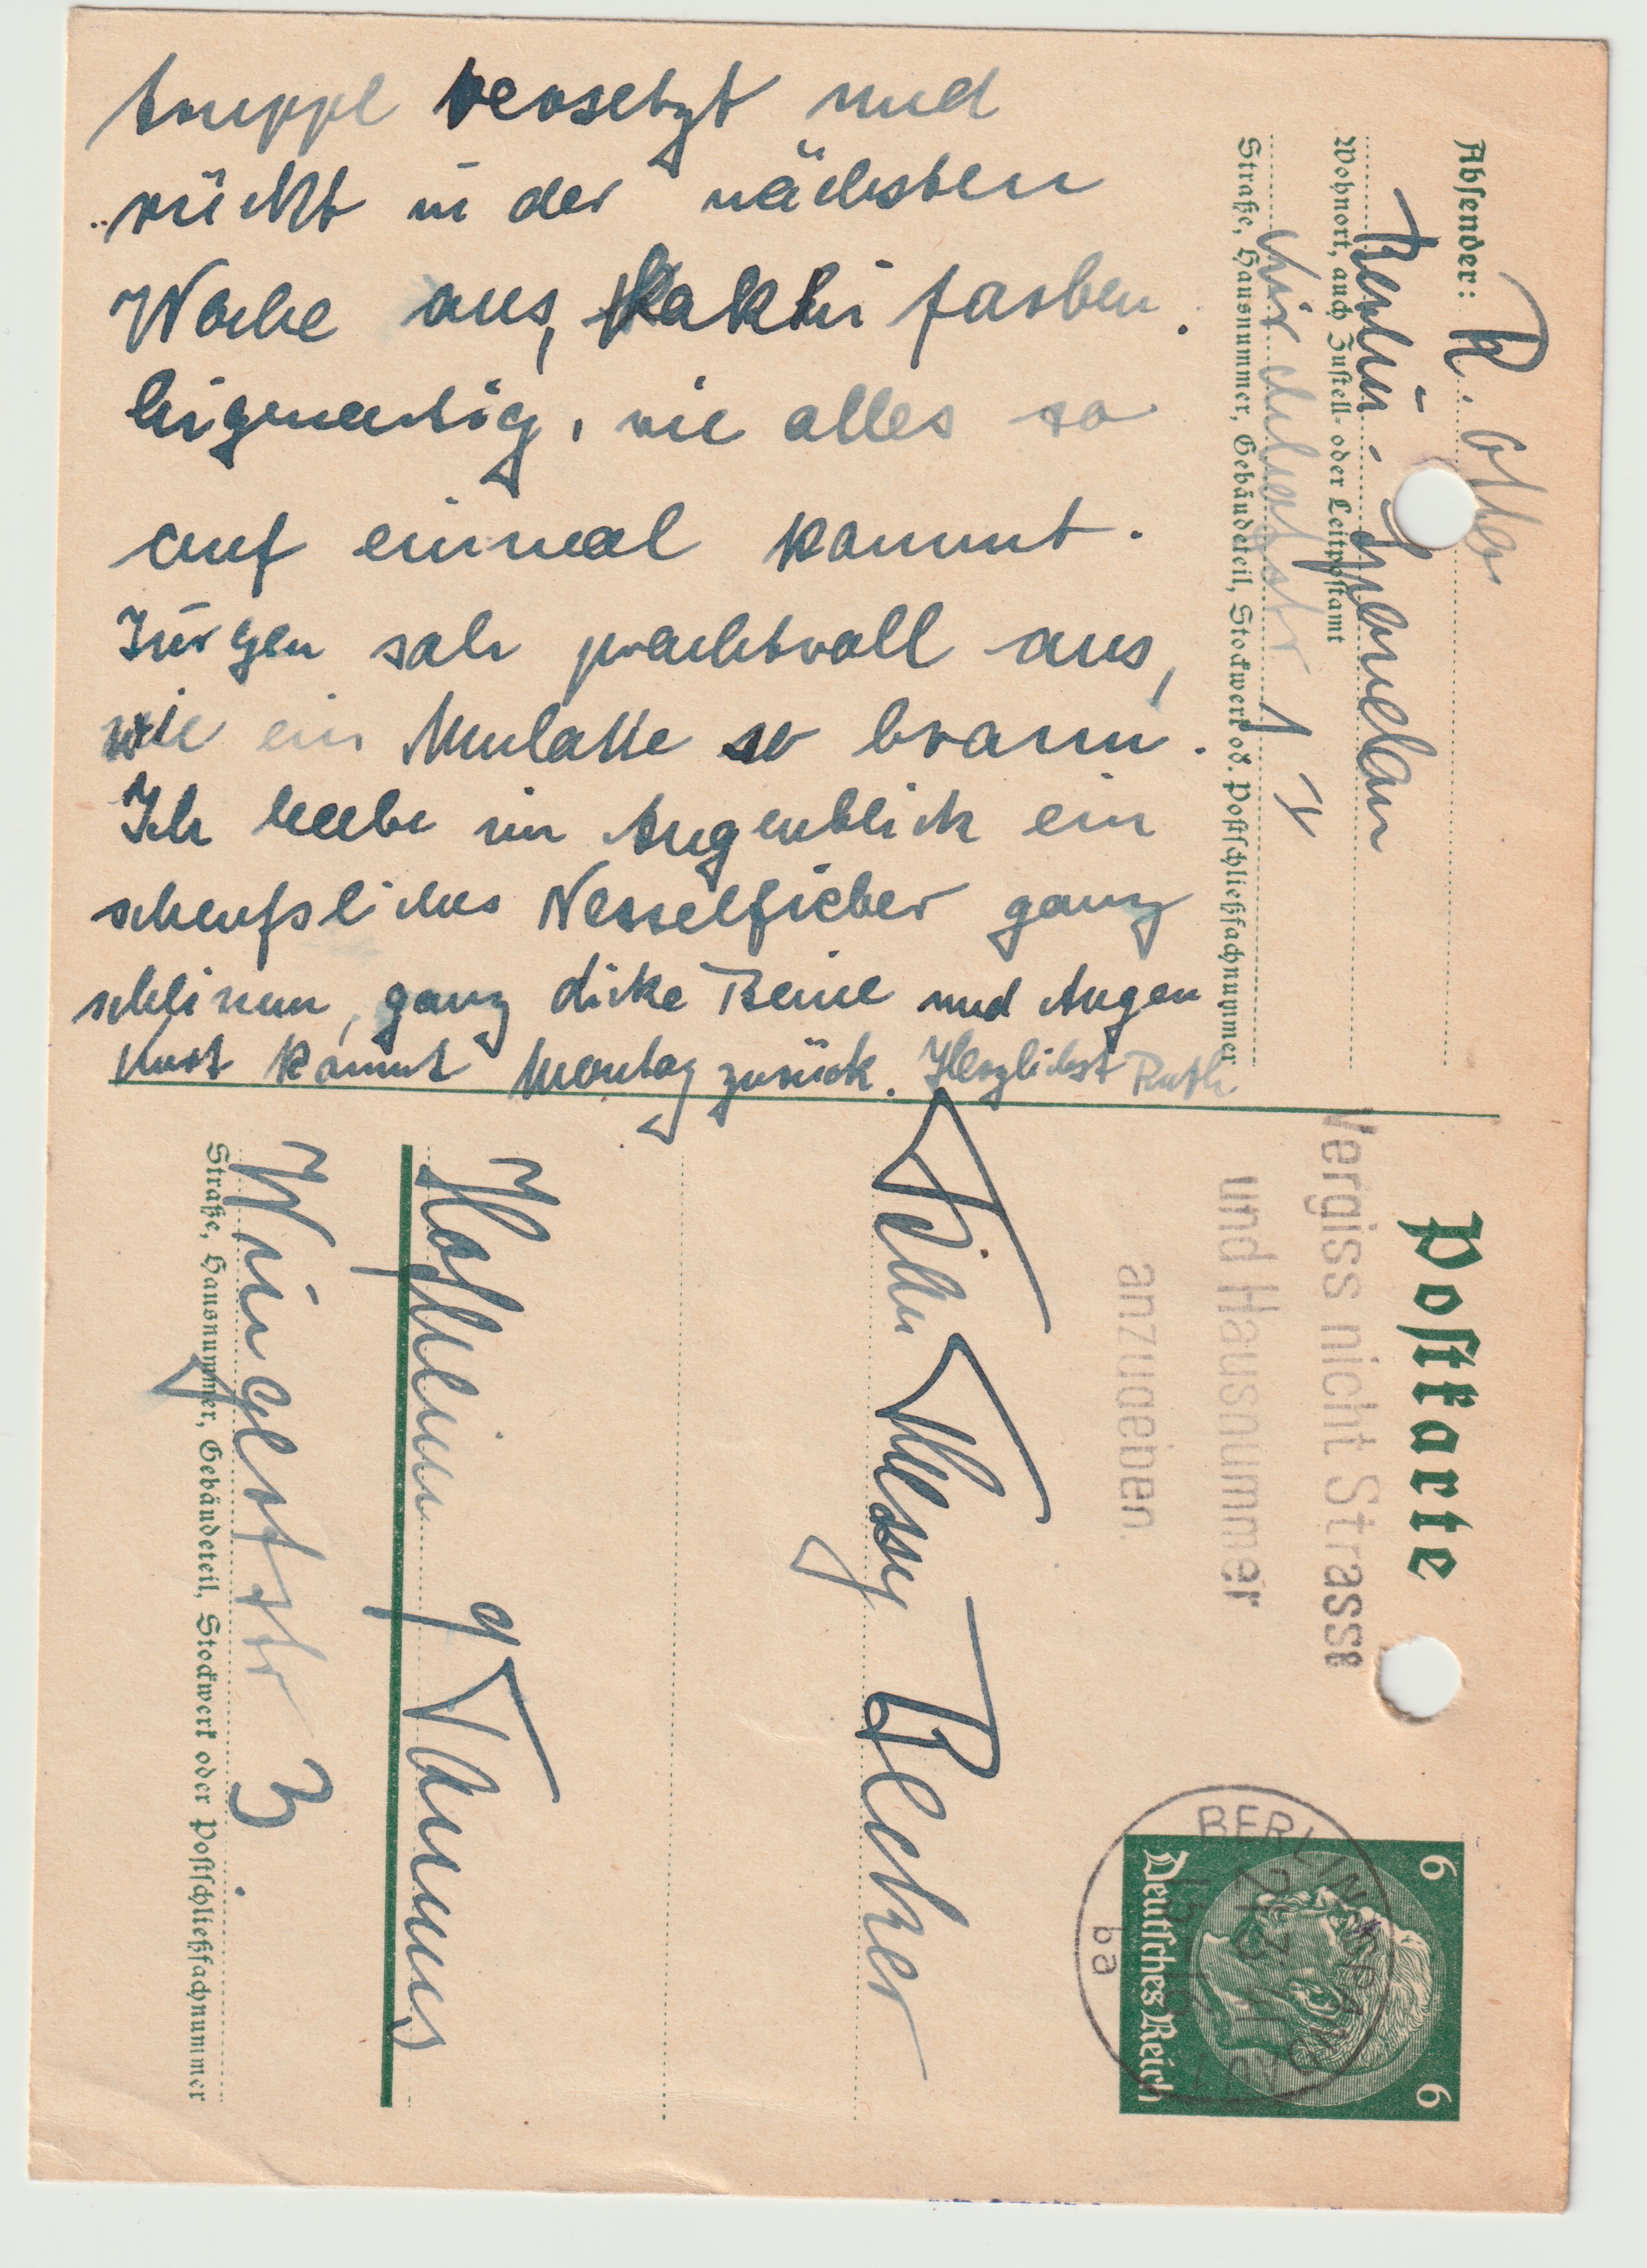 truppe versetzt und
rückt in der nächsten
Woche aus, Kakhi farben.
Eigenartig, wie alles so
auf einmal kommt.
Jürgen sah prachtvoll aus,
wie ein Mulatte so braun.
Ich habe im Augenblick ein
scheußliches Nesselfieber ganz
schlimm, ganz dicke Beine und Augen
Kurt kommt Montag zurück. Herzlichst Ruth
Absender: R. Otto
Berlin-
Wohnort, auch Zustell- oder Leitpostamt
Kirchhofstr 17
Straße, Hausnummer, Gebäudeteil, Stockwerk od. Postschließfachnummer
Postkarte
Vergiss nicht Strasse
und Hausnummer
anzugeben
6 6
Deutsches Reich
BERLIN-SPANDAU 1
ba
Becker
Hofheim Taunus
3
Straße, Hausnummer, Gebäudeteil, Stockwerk oder Postschließfachnummer